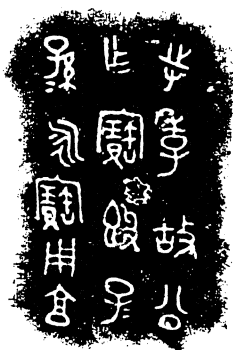 寺季故公
乍寶𣪘子
孫永寶用享